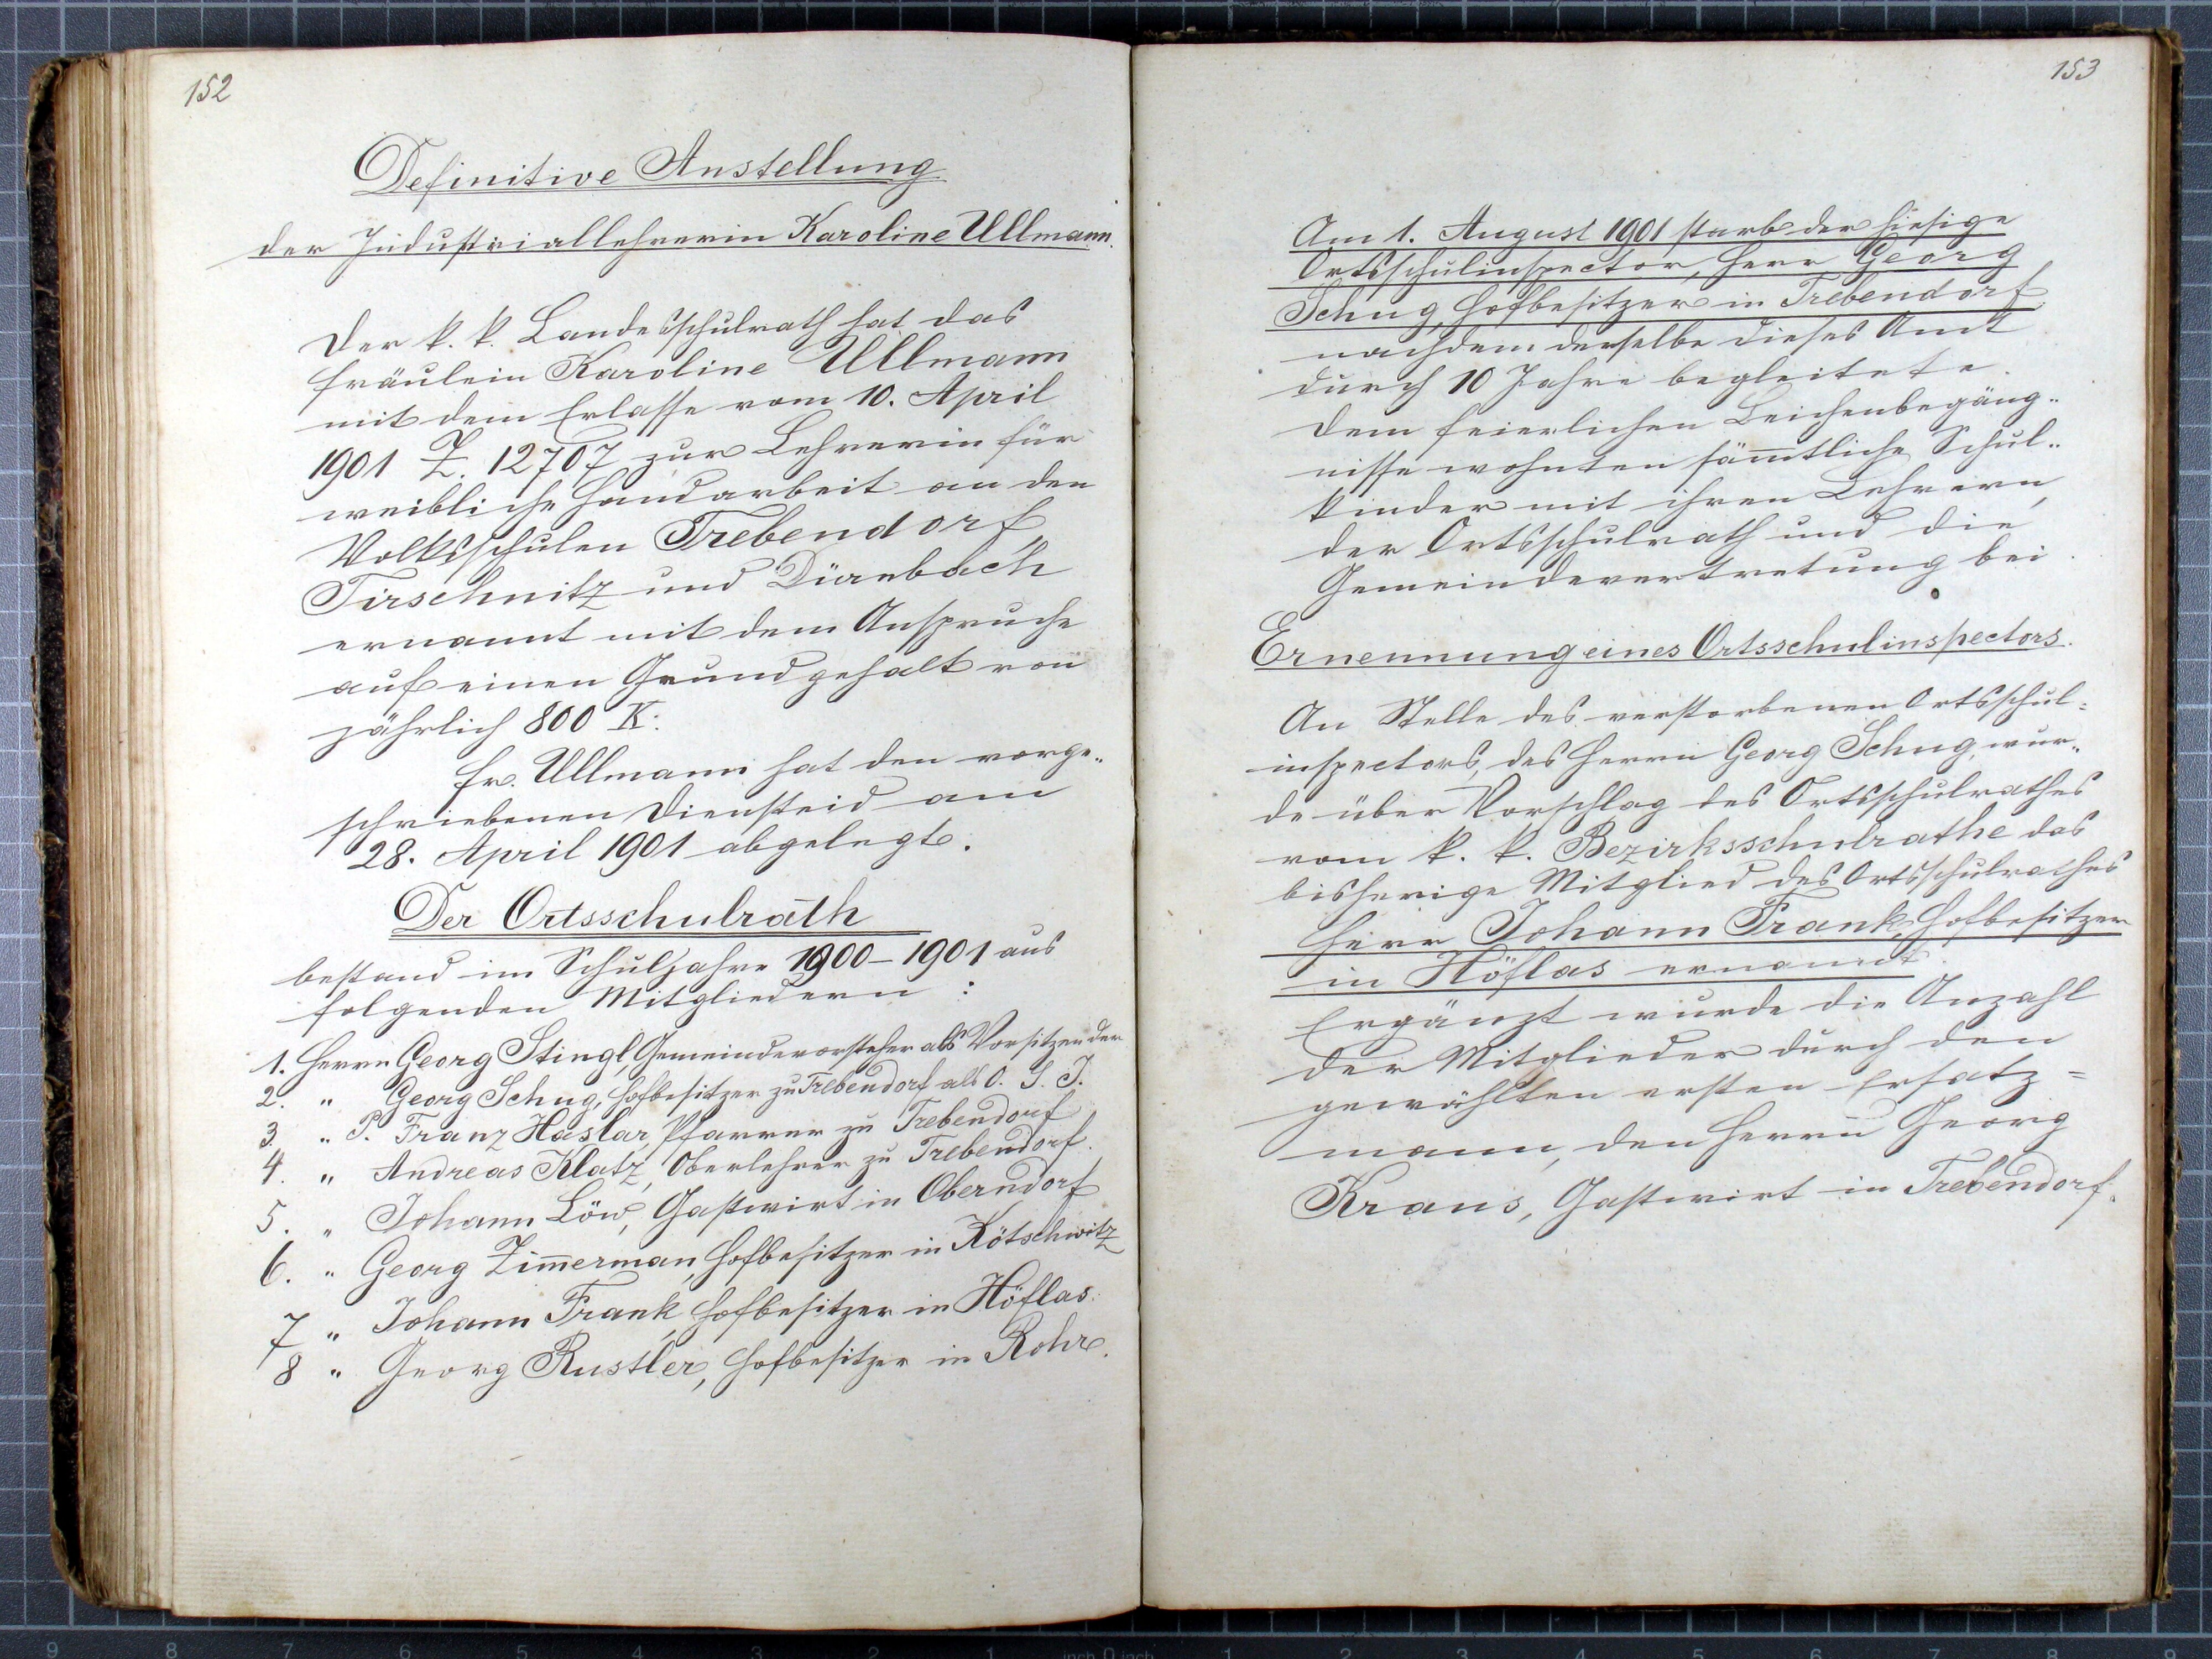 152
Definitive Anstellung
der Industriallehrerin Karoline Ullmann.
Der k. k. Landesschulrath hat das
Fräulein Karoline Ullmann
mit dem Erlasse vom 10. April
1901 Z. 12707 zur Lehrerin für
weibliche Handarbeit an den
Volksschulen Trebendorf,
Tirschnitz und Dürnbach
ernannt mit dem Anspruche
auf einen Grundgehalt von
jährlich 800 K.
Fr. Ullmann hat den vorge„
schriebenen Diensteid am
28. April 1901 abgelegt.
Der Ortsschulrath
bestand im Schuljahre 1900–1901 aus
folgenden Mitgliedern:
1. Herrn Georg Stingl, Gemeindevorsteher als Vorsitzender
2. " Georg Schug, Hofbesitzer zu Trebendorf als O. S. I.
3. " P. Franz Haslar, Pfarrer zu Trebendorf
4. " Andreas Klatz, Oberlehrer zu Trebendorf.
5. " Johann Löw, Gastwirt in Oberndorf
6. " Georg Zim̅erman, Hofbesitzer in Kötschwitz
7 " Johann Frank, Hofbesitzer in Höflas.
8 " Georg Rustler, Hofbesitzer in Rohr.
153
Am 1. August 1901 starb der hiesige
Ortsschulinspector, Herr Georg
Schug, Hofbesitzer in Trebendorf
nachdem derselbe dieses Amt
durch 10 Jahre begleitete.
Dem feierlichen Leichenbegäng„
nisse wohnten säm̅tliche Schul„
kinder mit ihren Lehrern,
der Ortsschulrath und die
Gemeindevertretung bei.
Ernennung eines Ortsschulinspectors.
An Stelle des verstorbenen Ortsschul=
inspectors, des Herrn Georg Schug, wur„
de über Vorschlag des Ortsschulrathes
vom k. k. Bezirksschulrathe das
bisherige Mitglied des Ortsschulrathes
Herr Johann Frank, Hofbesitzer
in Höflas ernannt.
Ergänzt wurde die Anzahl
der Mitglieder durch den
gewählten ersten Ersatz=
mann, den Herrn Georg
Kraus, Gastwirt in Trebendorf.
9 8 7 6 5 4 3 2 1 inch 0 inch 1 2 3 4 5 6 7 8 9